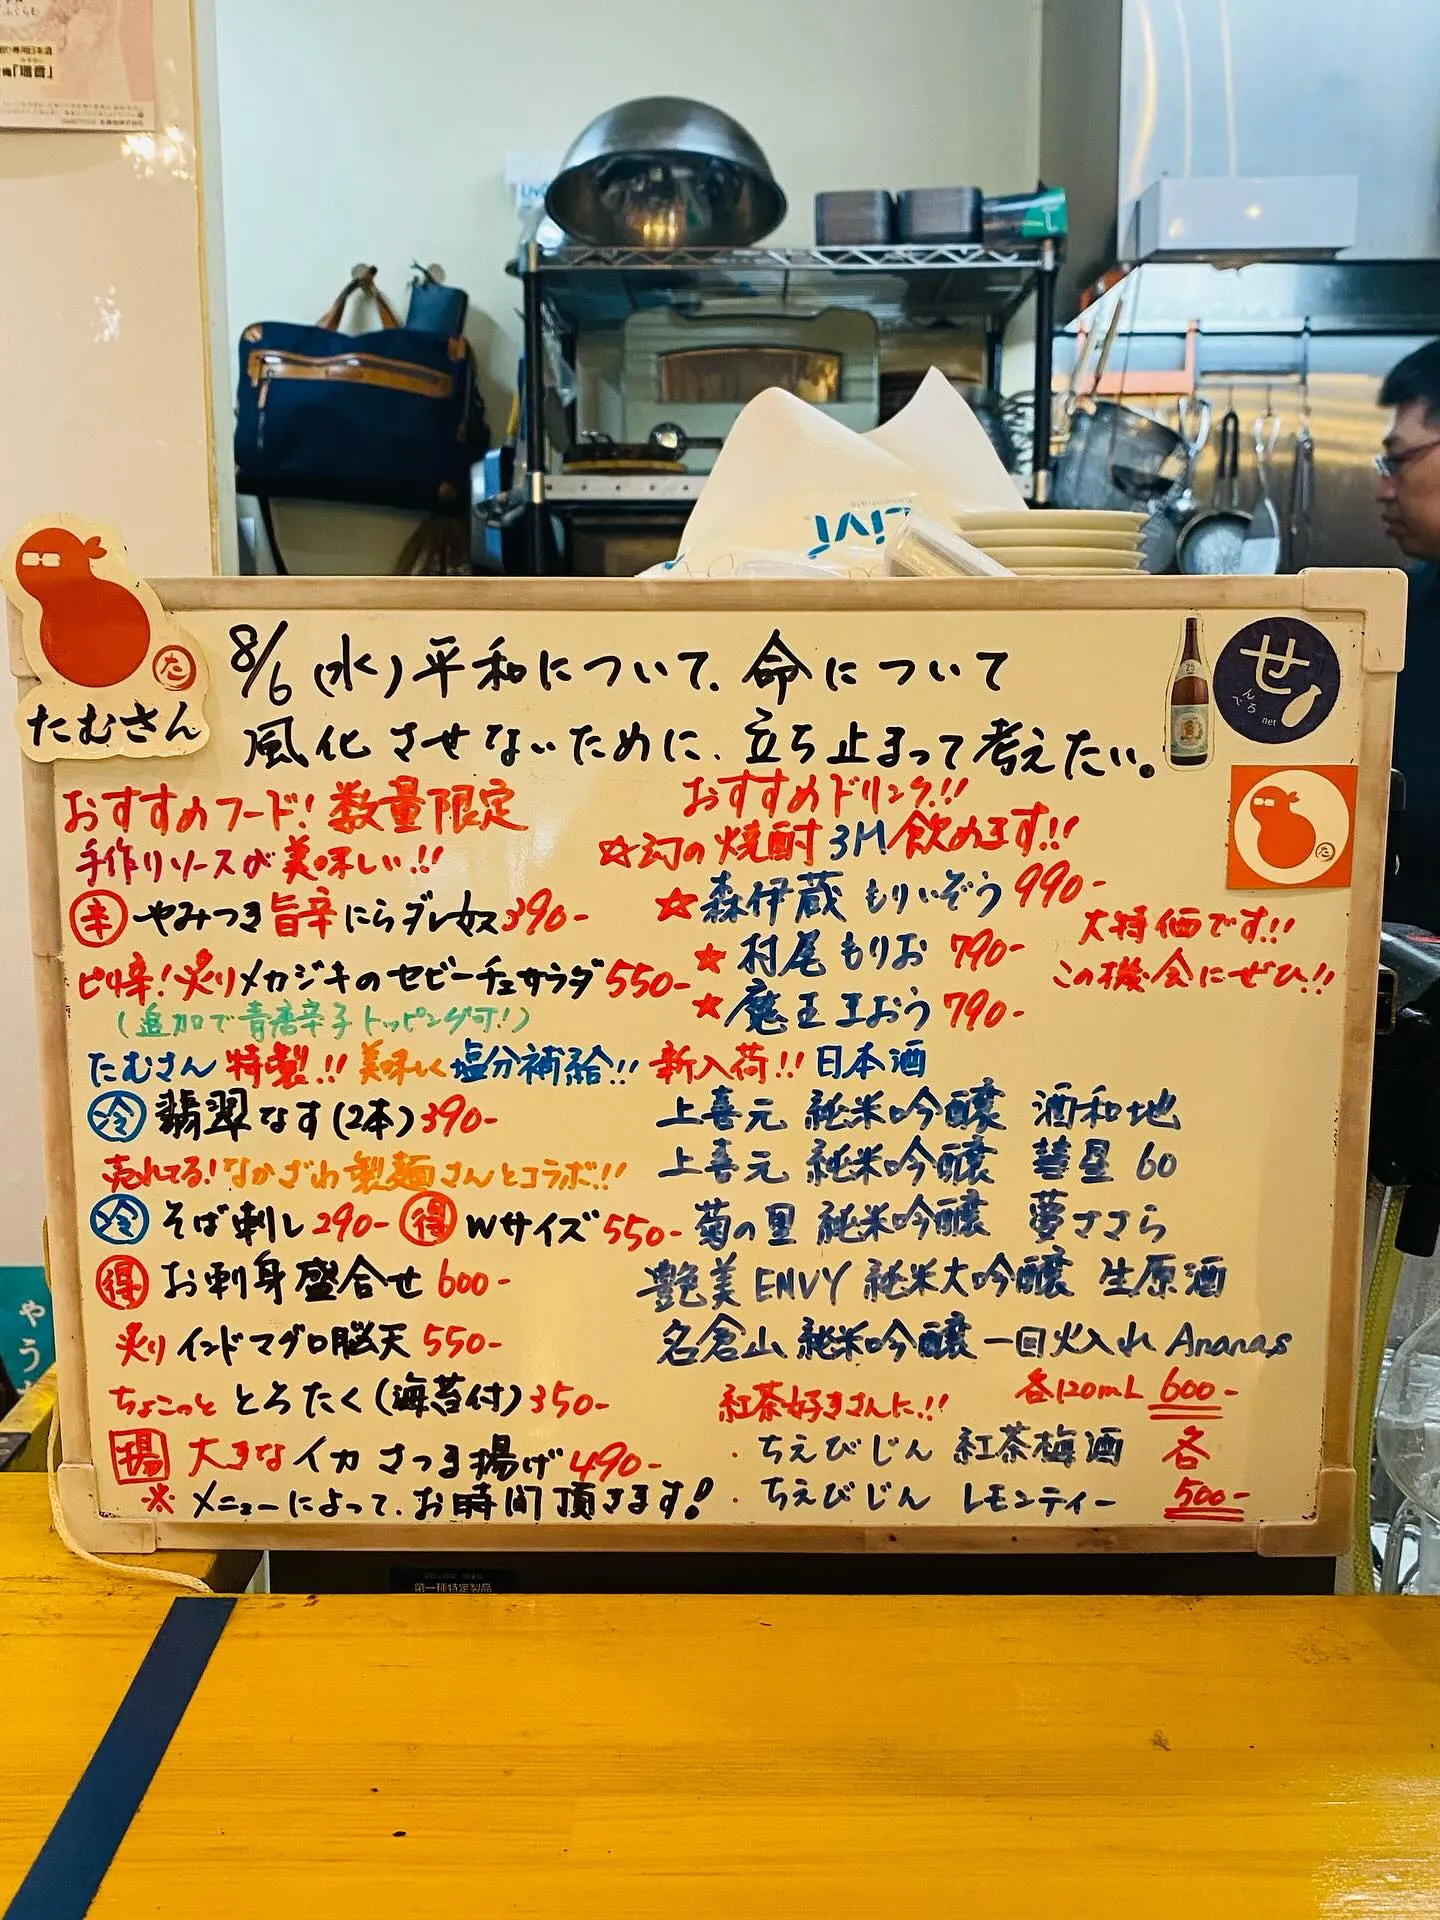 「瑠音」
Livi
たむさん
た
8/6(水)平和について、命について
風化させないために、立ち止まって考えたい。
せ
んでろ
net
た
おすすめフード!数量限定
手作りソースが美味しい!!
辛 やみつき旨辛にらダレ奴 390-
ピリ辛!炙りメカジキのセビーチェサラダ 550-
(追加で青唐辛子トッピング可!)
たむさん特製!!美味しく塩分補給!!
冷 翡翠なす(2本)390-
売れてる!なかざわ製麺さんとコラボ!!
冷 そば刺し 290- 得 Wサイズ 550-
得 お刺身盛合せ 600-
炙りインドマグロ脳天 550-
ちょこっととろたく(海苔付)350-
揚 大きなイカさつま揚げ 490-
※メニューによって、お時間頂きます!
おすすめドリンク!!
☆幻の焼酎3M飲めます!!
★森伊蔵 もりいぞう 990-
★村尾 もりお 790-
★魔王 まおう 790-
大特価です!!
この機会にぜひ!!
新入荷!!日本酒
上喜元 純米吟醸 酒和地
上喜元 純米吟醸 彗星60
菊の里 純米吟醸 夢ささら
艶美 ENVY 純米大吟醸 生原酒
名倉山 純米吟醸 一回火入れ Ananas
各120mL 600-
紅茶好きさんに!!
・ちえびじん 紅茶梅酒 各
・ちえびじん レモンティー 500-
第一種特定製品